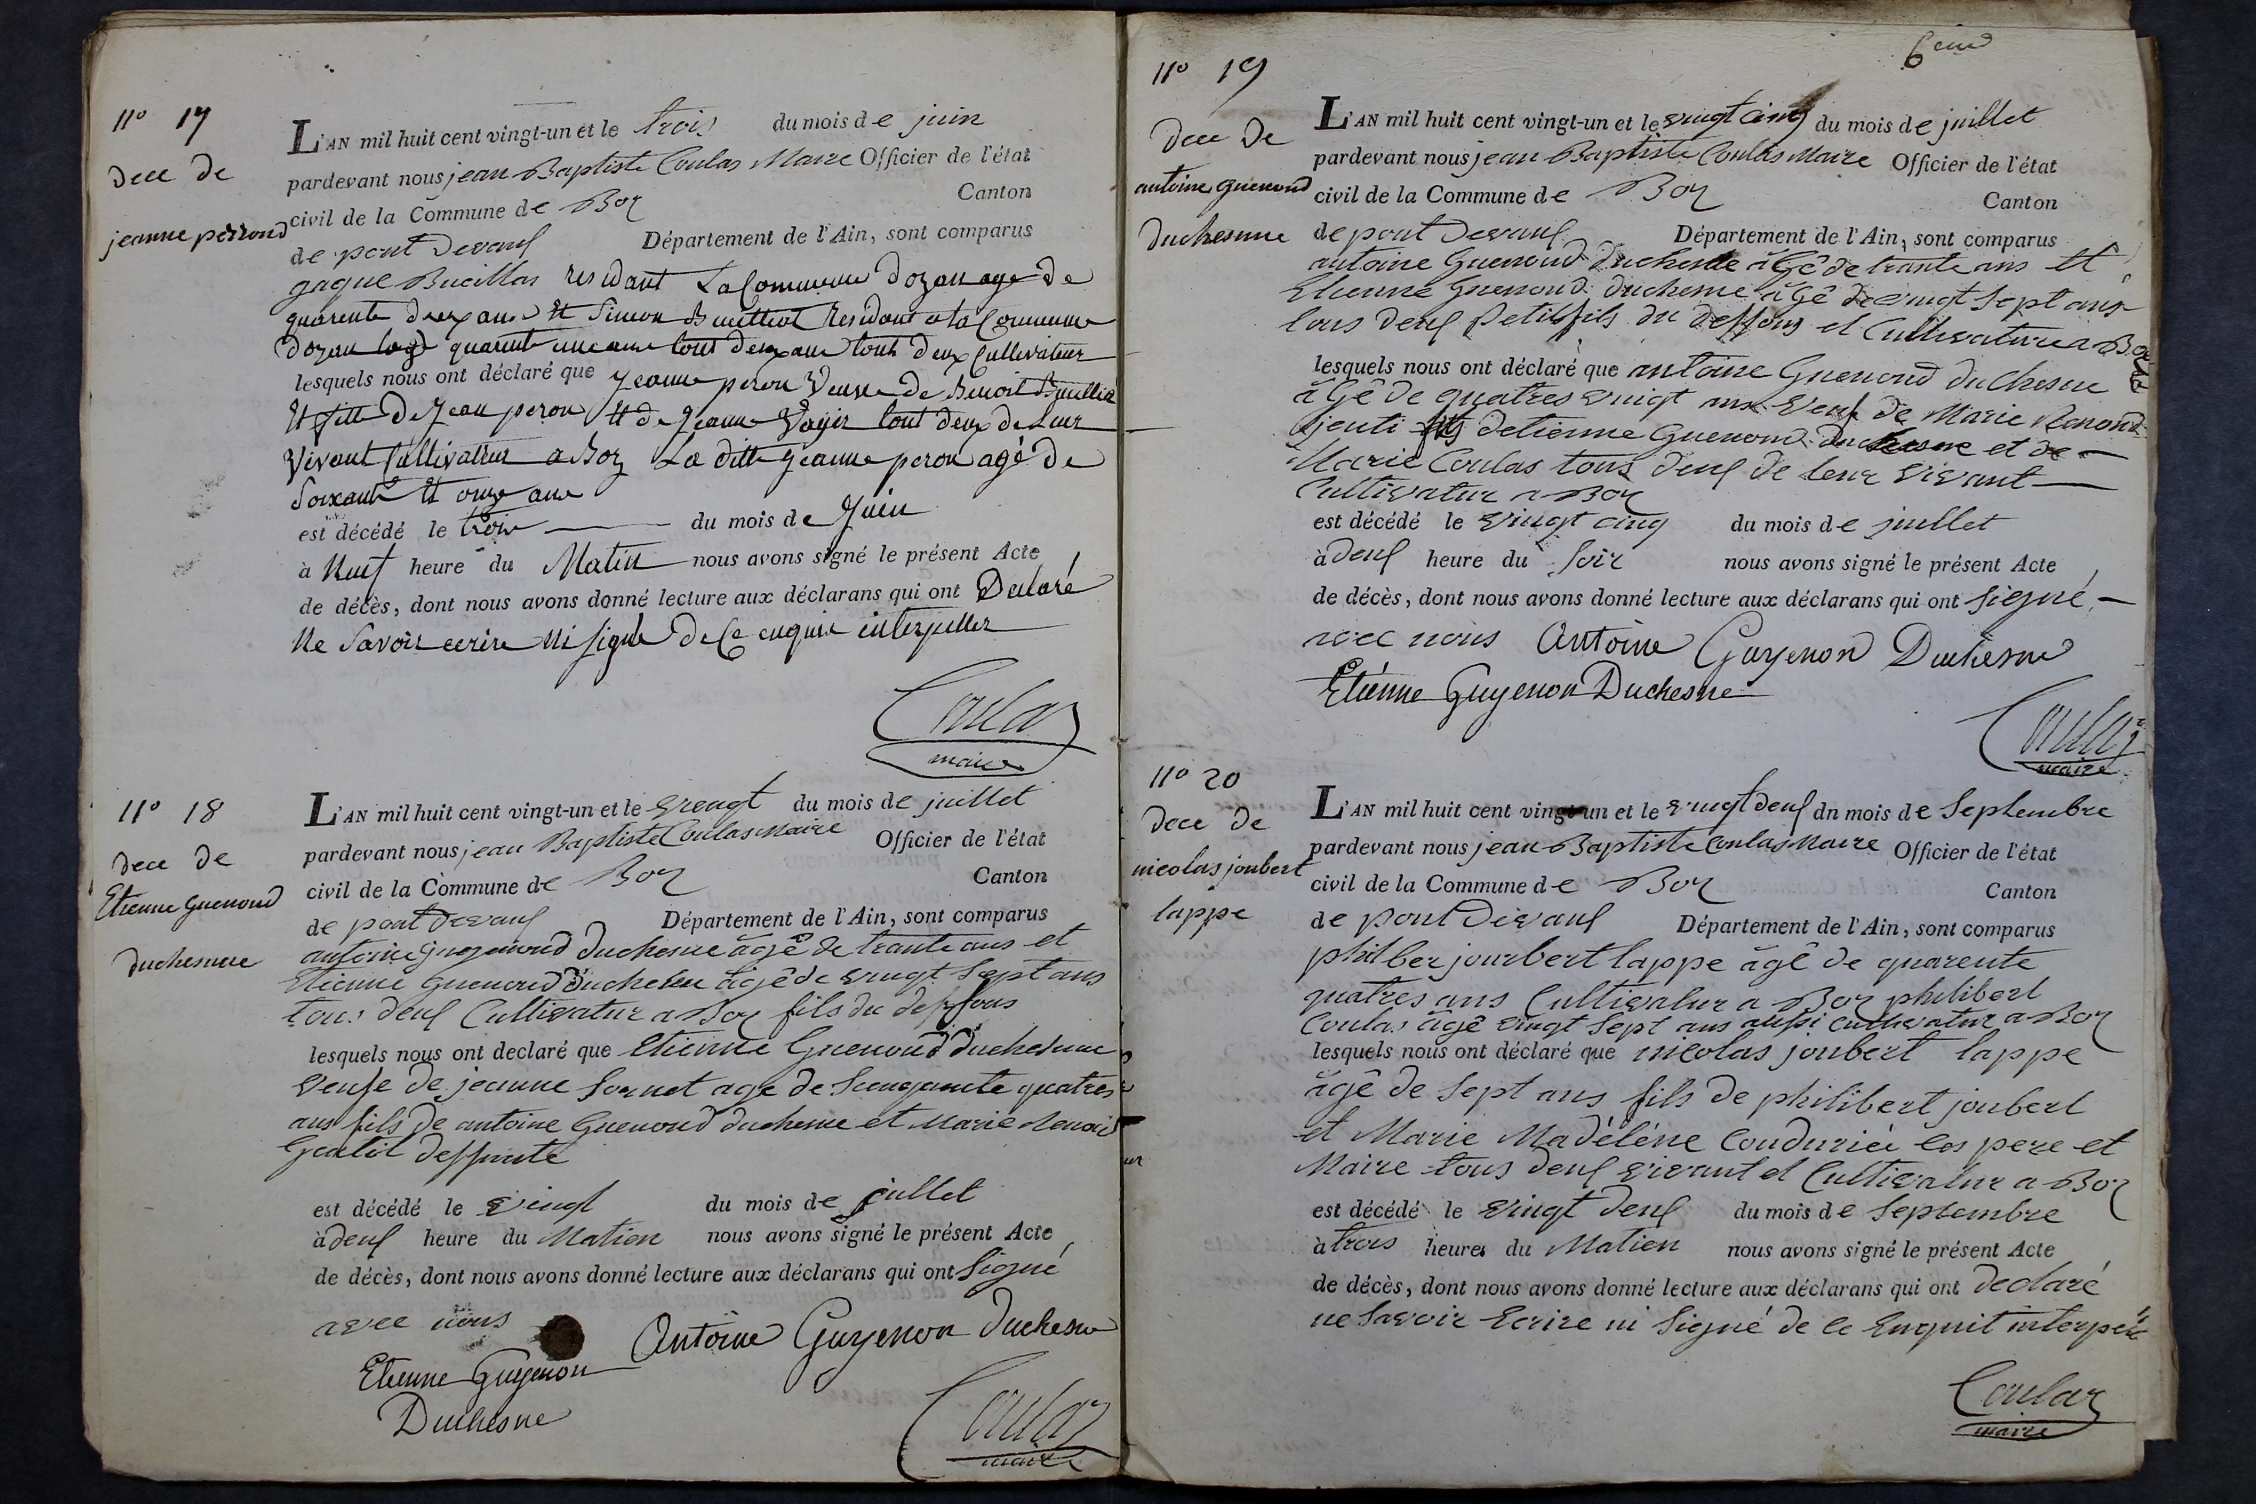 n° 17
dece de
jeanne perrond
L'AN mil huit cent vingt-un et le trois du mois de juin
pardevant nous jean Baptiste Coulas Maire Officier de l'état
civil de la Commune de Boz Canton
de pont devaux Département de l'Ain, sont comparus
gaque Buellas residant La Commune dozan age de
quarente deux ans Et Simon Buellat Residant a la Commune
dozan quarente une ans tout deux Cultivateur
lesquels nous ont déclaré que jeanne peron Veuve de Benoit Buellia
Et fille de Jean peron Et de Jeanne Voyer tout deux de Leur
Vivant Cultivateur a Boz La ditte Jeanne peron agé de
Soixante Et onze ans
est décédé le trois du mois de Juin
à Neuf heure du Matin nous avons signé le présent Acte
de décès, dont nous avons donné lecture aux déclarans qui ont Déclaré
Ne Savoir ecrire Ni signé de Ce enquis interpeller
Coulas
maire
n° 18
dece de
Etienne Guenond
duchesnne
L'AN mil huit cent vingt-un et le vengt du mois de juillet
pardevant nous jean Baptiste Coulas Maire Officier de l'état
civil de la Commune de Boz Canton
de pont devaux Département de l'Ain, sont comparus
antoine guenond duchesne âgê de trante ans et
Etienne Guenond duchesne âgê de vingt Sept ans
tous deux Cultivatur a Boz fils du deffons
lesquels nous ont declaré que Etienne Guenond duchesnne
veufe de jeanne Sornet age de quatres
ans fils de antoine Guenond duchesne et Marie Renond
deffunte
est décédé le vingt du mois de juillet
à deux heure du Matien nous avons signé le présent Acte
de décès, dont nous avons donné lecture aux déclarans qui ont Signé
avec nous
Antoine Guyenon duchesne
Etienne Guyenon
Duchesne
Coulas
maire
6eme
n° 19
dece de
antoine guenond
duchesnne
L'AN mil huit cent vingt-un et le vingt cinq du mois de juillet
pardevant nous jean Baptiste Coulas Maire Officier de l'état
civil de la Commune de Boz Canton
de pont devaux Département de l'Ain, sont comparus
antoine Guenond duchesne âGê de trante ans et
Etienne Guenond duchesne âGê de vingt Sept ans
tous deux Petit fils du deffons et Cultivature a Boz
lesquels nous ont déclaré que antoine Guenond duchesne
âGê de quatres vingt ans veuf de Marie Renond
fils detienne Guenond duchesne et de
Marie Coulas tous deux de leur vivant
Cultivatur a Boz
est décédé le vingt cinq du mois de juillet
à deux heure du soir nous avons signé le présent Acte
de décès, dont nous avons donné lecture aux déclarans qui ont signé
avec nous Antoine Guyenon Duchesne
Etiénne Guyenon Duchesne
Coulas
maire
n° 20
dece de
nicolas joubert
lappe
L'AN mil huit cent vingt-un et le vingt deux du mois de Septembre
pardevant nous jean Baptiste Coulas Maire Officier de l'état
civil de la Commune de Boz Canton
de pont devaux Département de l'Ain, sont comparus
philber jourbert lappe âgê de quarente
quatres ans Cultivatur a Boz philibert
Coulas âgê vingt Sept ans aussi cultivatur a Boz
lesquels nous ont déclaré que nicolas joubert lappe
âgê de Sept ans fils de philibert joubert
et Marie Madéléne Couduriéé les pere et
Maire tous deux vivant et Cultivatur a Boz
est décédé le vingt deux du mois de Septembre
à trois heures du Matien nous avons signé le présent Acte
de décès, dont nous avons donné lecture aux déclarans qui ont declaré
ne Savoir Ecrire ni Signé de ce Enquit
Coulas
maire